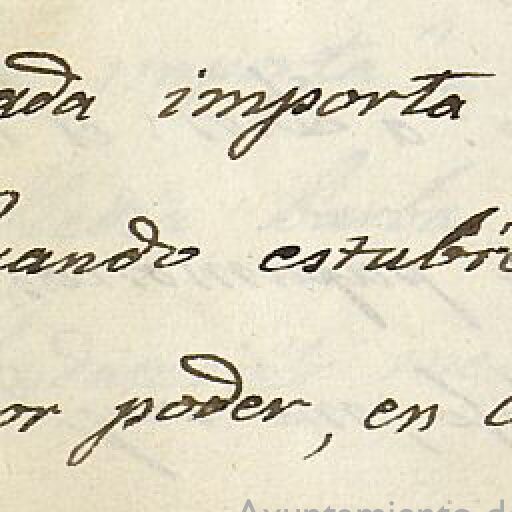 ada importa
uando estubie
or poder, en c
Ayuntamiento de